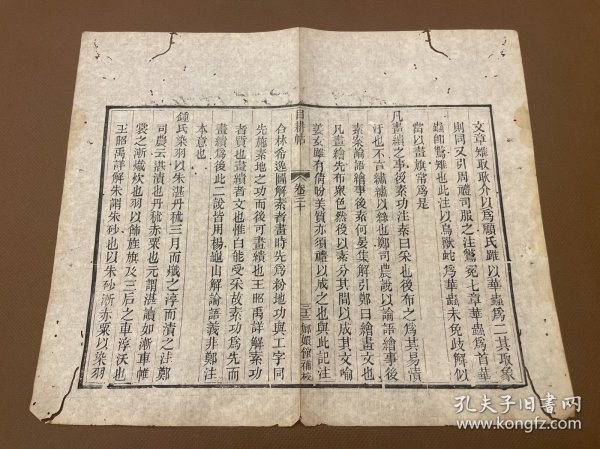 文章雉取耿介以爲顧氏雖以華蟲爲二其取象
則同又引周禮司服之注鷩冕七章華蟲爲首華
蟲師鷩雉也此注以鳥獸蛇爲華蟲未免歧解似
當以畫旗常爲是
凡畫繢之事後素功注素白采也後布之爲其易漬
汙也不言繡繡以絲也鄭司農說以論語繪事後
素案論語繪事後素何晏集解引鄭曰繪畫文也
凡畫繪先布衆色然後以素分其閒以成其文喻
美女雖有倩盼美質亦須禮以成之也與此記注
目耕帖
卷三十
三十二
嫏嬛館補校
合林希逸圖解素者畫時先爲粉地功與工字同
先施素地之功而後可畫繢也王昭禹詳解素功
者質也畫繢者文也惟白能受采故素功爲先而
畫繢爲後此二說皆用楊龜山解論語義非鄭注
本意也
鍾氏染羽以朱湛丹秫三月而熾之淳而漬之注鄭
司農云湛漬也丹秫赤粟也元謂湛讀如漸車帷
裳之漸熾炊也羽以飾旌旗及王后之車淳沃也
王昭禹詳解朱謂朱砂也以朱砂漸赤粟以染羽
孔夫子旧书网
www.kongfz.com